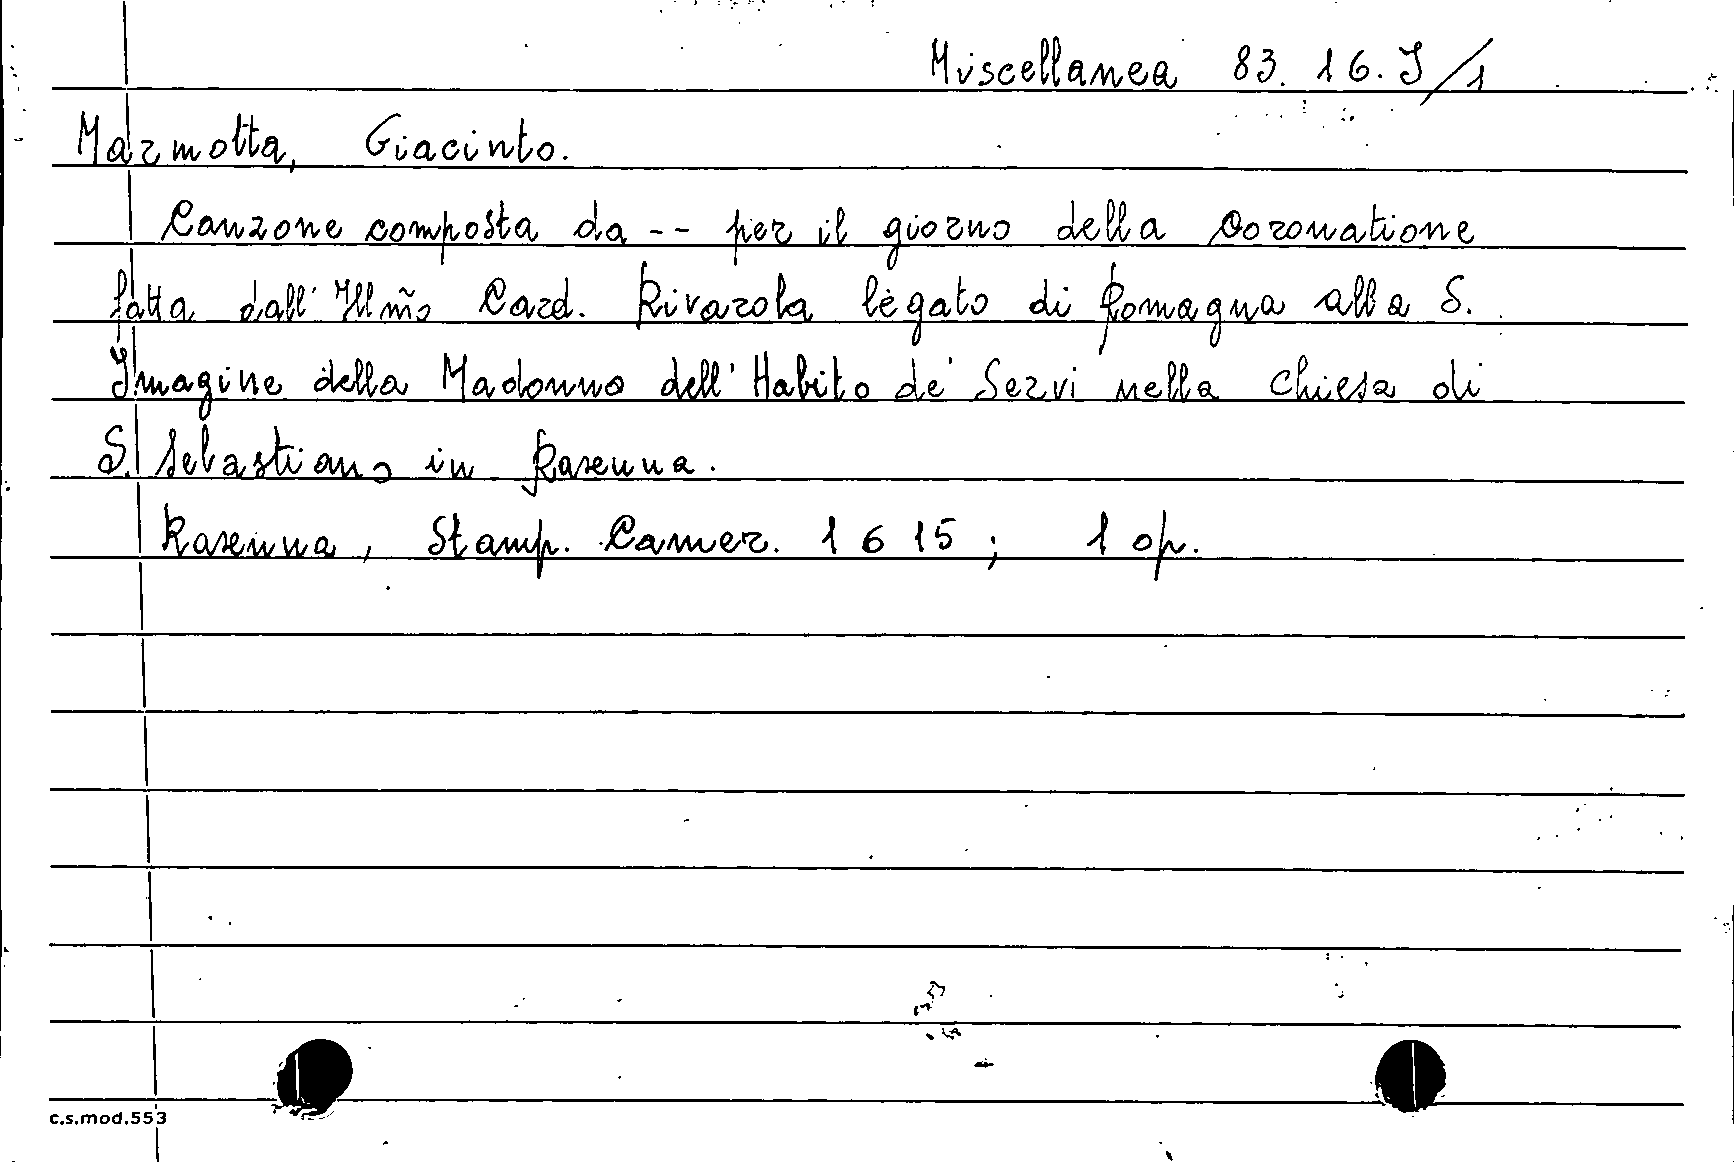 Miscellanea 83. 16. I/1
Marmotta, Giacinto.
Canzone composta da -- per il giorno della Coronatione
fatta dall' Illm̃o Card. Rivarola legato di Romagna alla S.
Imagine della Madonna dell' Habito de' Servi nella Chiesa di
S. Sebastiano in Ravenna.
Ravenna, Stamp. Camer. 1615; 1 op.
c.s.mod.553